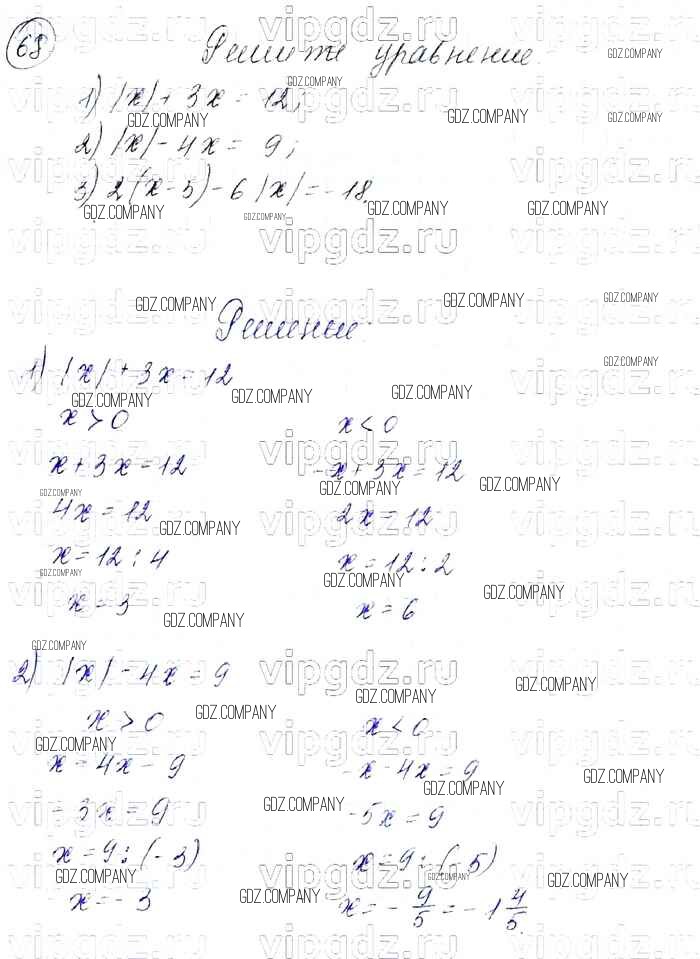 68 Решите уравнение.
1) |x| + 3x = 12;
2) |x| - 4x = 9;
3) 2(x - 5) - 6|x| = -18.
Решение:
1) |x| + 3x = 12
x > 0 x < 0
x + 3x = 12 -x + 3x = 12
4x = 12 2x = 12
x = 12 : 4 x = 12 : 2
x = 3 x = 6
2) |x| - 4x = 9
x > 0 x < 0
x = 4x - 9 -x - 4x = 9
-3x = 9 -5x = 9
x = 9 : (-3) x = 9 : (-5)
x = -3 x = -9/5 = -1 4/5.
vipgdz.ru
GDZ.COMPANY